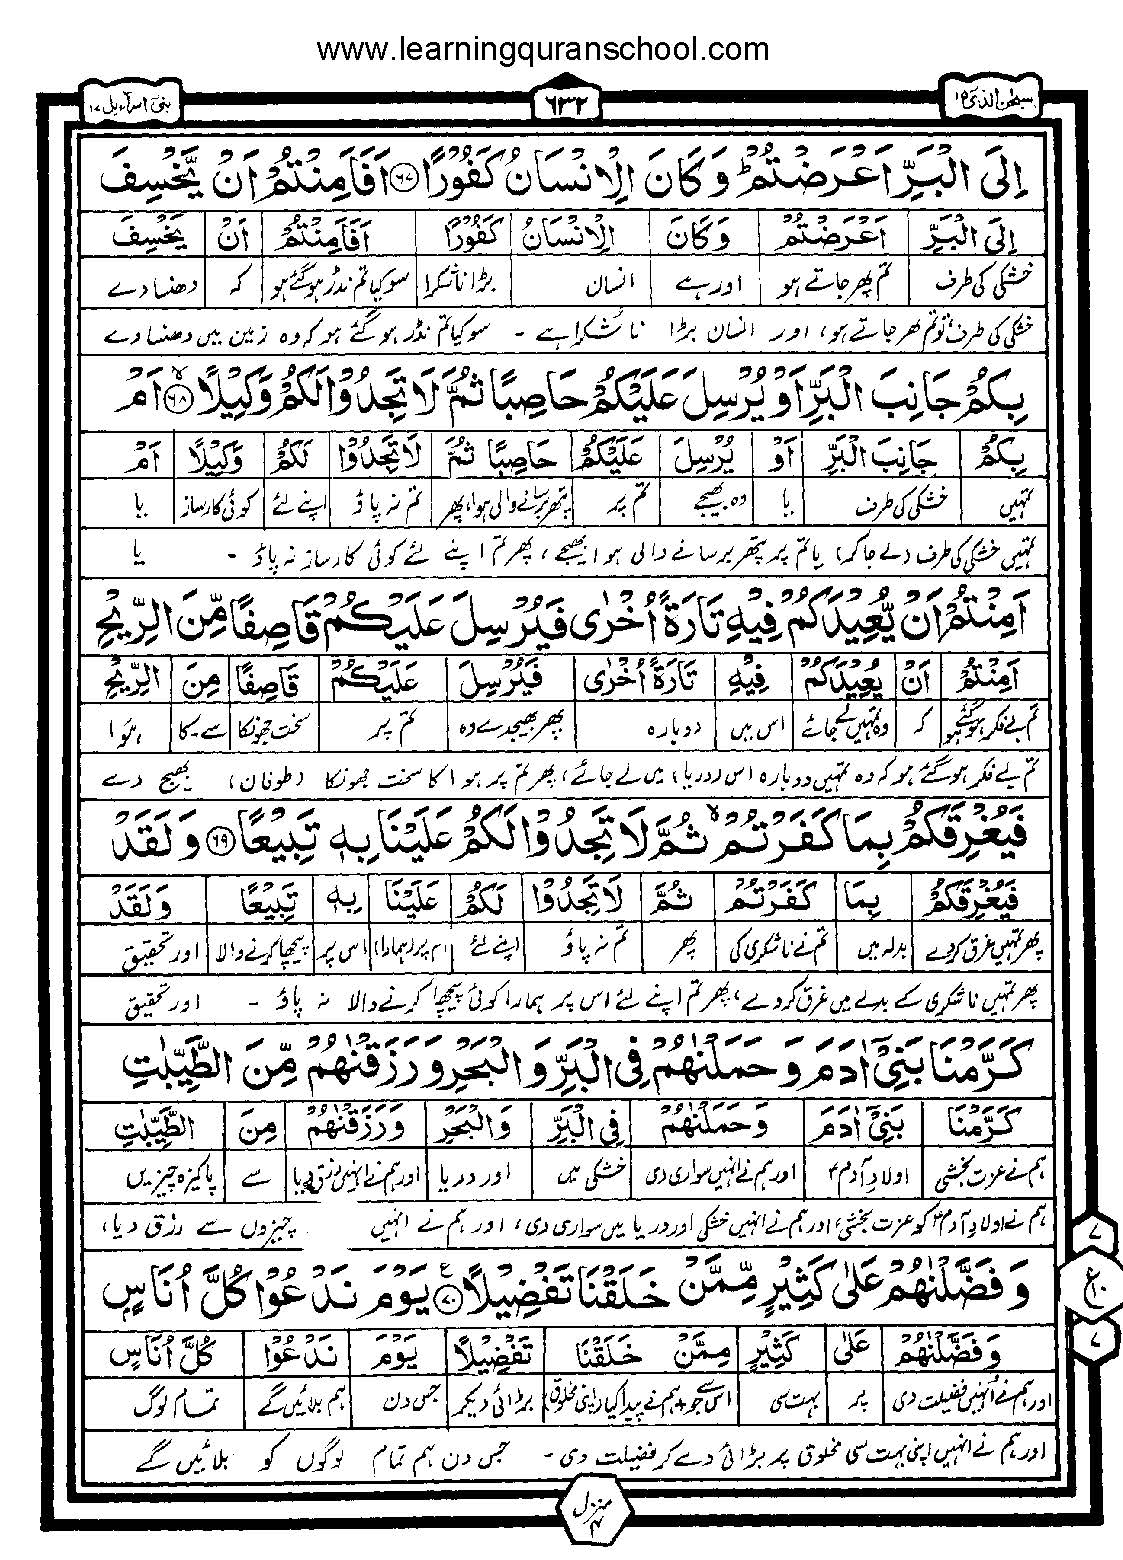 www.learningquranschool.com
سبحٰن الذی ۱۵
۶۳۲
بنی اسرآءیل ۱۷
اِلَى الْبَرِّ اَعْرَضْتُمْ ؕ وَ كَانَ الْاِنْسَانُ كَفُوْرًا ﴿۶۷﴾ اَفَاَمِنْتُمْ اَنْ یَّخْسِفَ
اِلَى الْبَرِّ اَعْرَضْتُمْ وَ كَانَ الْاِنْسَانُ كَفُوْرًا اَفَاَمِنْتُمْ اَنْ یَّخْسِفَ
خشکی کی طرف تم پھر جاتے ہو اور ہے انسان بڑا ناشکرا سو کیا تم نڈر ہو گئے ہو کہ دھنسا دے
خشکی کی طرف تو تم پھر جاتے ہو، اور انسان بڑا ناشکرا ہے ۔ سو کیا تم نڈر ہو گئے ہو کہ وہ زمین میں دھنسا دے
بِكُمْ جَانِبَ الْبَرِّ اَوْ یُرْسِلَ عَلَیْكُمْ حَاصِبًا ثُمَّ لَا تَجِدُوْا لَكُمْ وَكِیْلًا ﴿۶۸﴾ اَمْ
بِكُمْ جَانِبَ الْبَرِّ اَوْ یُرْسِلَ عَلَیْكُمْ حَاصِبًا ثُمَّ لَا تَجِدُوْا لَكُمْ وَكِیْلًا اَمْ
تمہیں خشکی کی طرف یا وہ بھیجے تم پر پتھر برسانے والی ہوا، پھر تم نہ پاؤ اپنے لئے کوئی کارساز یا
تمہیں خشکی کی طرف (لے جا کر) یا تم پر پتھر برسانے والی ہوا بھیجے، پھر تم اپنے لئے کوئی کارساز نہ پاؤ ۔ یا
اَمِنْتُمْ اَنْ یُّعِیْدَكُمْ فِیْهِ تَارَةً اُخْرٰى فَیُرْسِلَ عَلَیْكُمْ قَاصِفًا مِّنَ الرِّیْحِ
اَمِنْتُمْ اَنْ یُّعِیْدَكُمْ فِیْهِ تَارَةً اُخْرٰى فَیُرْسِلَ عَلَیْكُمْ قَاصِفًا مِنَ الرِّیْحِ
تم بے فکر ہو گئے ہو کہ وہ تمہیں لے جائے اس میں دوبارہ پھر بھیجدے وہ تم پر سخت جھونکا سے ۔ کا ہوا
تم بے فکر ہو گئے ہو کہ وہ تمہیں دوبارہ اس (دریا) میں لے جائے، پھر تم پر ہوا کا سخت جھونکا (طوفان) بھیج دے
فَیُغْرِقَكُمْ بِمَا كَفَرْتُمْ ۙ ثُمَّ لَا تَجِدُوْا لَكُمْ عَلَیْنَا بِهٖ تَبِیْعًا ﴿۶۹﴾ وَ لَقَدْ
فَیُغْرِقَكُمْ بِمَا كَفَرْتُمْ ثُمَّ لَا تَجِدُوْا لَكُمْ عَلَیْنَا بِهٖ تَبِیْعًا وَ لَقَدْ
پھر تمہیں غرق کردے بدلہ میں تم نے ناشکری کی پھر تم نہ پاؤ اپنے لئے ہم پر (ہمارا) اس پر پیچھا کرنے والا اور تحقیق
پھر تمہیں ناشکری کے بدلے میں غرق کر دے، پھر تم اپنے لئے اس پر ہمارا کوئی پیچھا کرنے والا نہ پاؤ ۔ اور تحقیق
كَرَّمْنَا بَنِیْۤ اٰدَمَ وَ حَمَلْنٰهُمْ فِی الْبَرِّ وَ الْبَحْرِ وَ رَزَقْنٰهُمْ مِّنَ الطَّیِّبٰتِ
كَرَّمْنَا بَنِیْۤ اٰدَمَ وَ حَمَلْنٰهُمْ فِی الْبَرِّ وَ الْبَحْرِ وَ رَزَقْنٰهُمْ مِنَ الطَّیِّبٰتِ
ہم نے عزت بخشی اولادِ آدمؑ اور ہم نے انہیں سواری دی خشکی میں اور دریا اور ہم نے انہیں رزق دیا سے پاکیزہ چیزیں
ہم نے اولادِ آدمؑ کو عزت بخشی، اور ہم نے انہیں خشکی اور دریا میں سواری دی، اور ہم نے انہیں چیزوں سے رزق دیا،
وَ فَضَّلْنٰهُمْ عَلٰى كَثِیْرٍ مِّمَّنْ خَلَقْنَا تَفْضِیْلًا ﴿۷۰﴾ ع یَوْمَ نَدْعُوْا كُلَّ اُنَاسٍ
وَ فَضَّلْنٰهُمْ عَلٰى كَثِیْرٍ مِّمَّنْ خَلَقْنَا تَفْضِیْلًا یَوْمَ نَدْعُوْا كُلَّ اُنَاسٍ
اور ہم نے انہیں فضیلت دی پر بہت سی اس سے جو ہم نے پیدا کیا (اپنی مخلوق) بڑائی دیکر جس دن ہم بلائیں گے تمام لوگ
اور ہم نے انہیں اپنی بہت سی مخلوق پر بڑائی دے کر فضیلت دی ۔ جس دن ہم تمام لوگوں کو بلائیں گے
۷
ع ۱۰
۷
منزل ۴